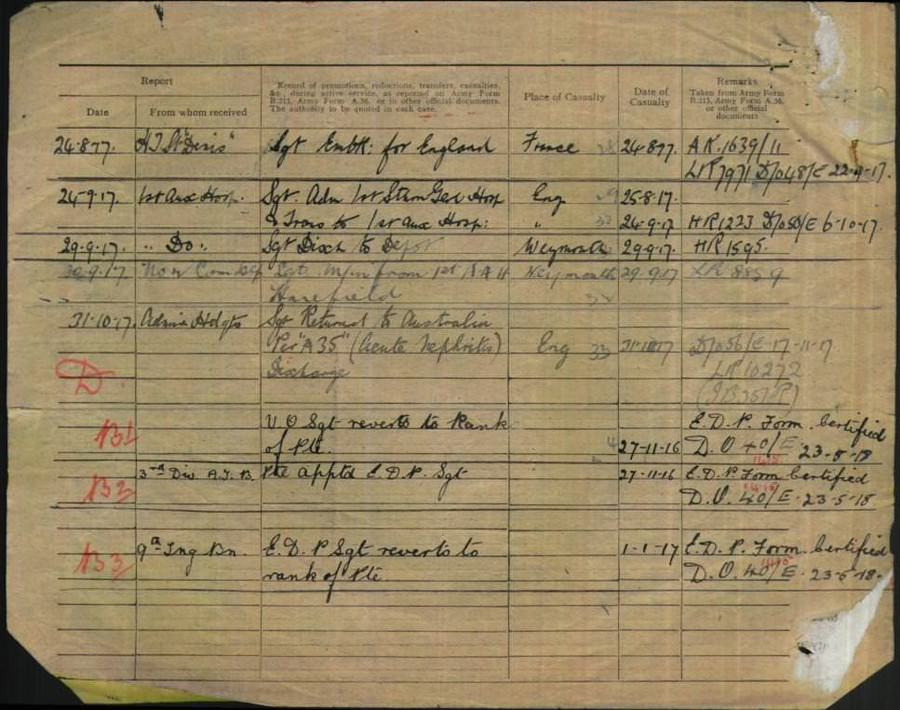 Report
Record of promotions, reductions, transfers, casualties,
&c., during active service, as reported on Army Form
B.213, Army Form A.36, or in other official documents.
The authority to be quoted in each case.
Place of Casualty
Date of
Casualty
Remarks
Taken from Army Form
B.213, Army Form A.36,
or other official
documents
Date
From whom received
24.8.17. H.T. "St Denis" Sgt Embk: for England France 24.8.17. A.K.1639/11
LR7971 D/048/E 22-9-17.
24-9-17. 1st Aux Hosp. Sgt. Adm 1st Strn Gen Hosp Eng 25-8-17.
& Trans to 1st Aux Hosp: " 24-9-17 HR1233 D/050/E 6-10-17.
29.9.17. " Do. Sgt Disch to Depot Weymouth 29.9.17. HR1595.
30.9.17 No 2 Com Dep Sgt. M/in from 1st A A H Weymouth 29.9.17 LR 8859
Harefield
31-10-17. Admin Hdqts Sgt Returned to Australia
Per "A35" (Acute Nephritis) Eng 33 31.10.17 D/056/E 17-11-17
D Discharge LR 10272
B1 V O Sgt reverts to Rank E.D.P. Form. Certified
of Pte. 27-11-16 D.O 40/E. 23-5-18
B2 3rd Div. A.T. B. Pte Apptd E.D.P. Sgt 27-11-16 E.D.P. Form Certified
D.O. 40/E. 23-5-18
B3 9th Tng Bn. E.D.P Sgt reverts to 1-1-17 E.D.P. Form. Certified
rank of Pte D.O. 40/E. 23-5-18.